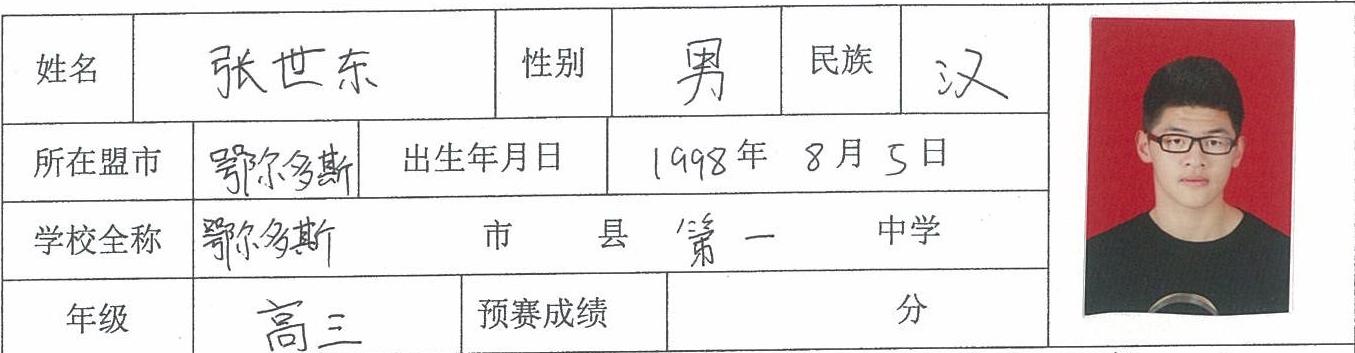 姓名 张世东 性别 男 民族 汉
所在盟市 鄂尔多斯 出生年月日 1998年 8月5日
学校全称 鄂尔多斯 市 县 第一 中学
年级 高三 预赛成绩 分